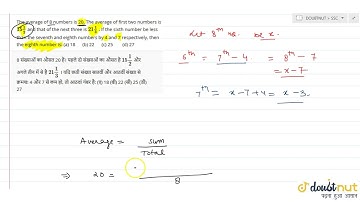 The average of 8 numbers is 20. The average of first two numbers is
15 1/2 and that of the next three is 21 1/3. If the sixth number be less
than the seventh and eighth numbers by 4 and 7 respectively, then
the eighth number is: (a) 18 (b) 22 (c) 25 (d) 27
8 संख्याओं का औसत 20 है। पहले दो संख्याओं का औसत है 15 1/2 और
अगले तीन में से है 21 1/3। यदि छठी संख्या सातवीं और आठवीं संख्या से
क्रमशः 4 और 7 से कम हो, तो आठवां नंबर है: (ए) 18 (बी) 22 (सी) 25 (डी)
27
Let 8th no. be x.
6th = 7th - 4 = 8th - 7
= x - 7
7th = x - 7 + 4 = x - 3.
Average = sum / Total
⇒ 20 = / 8
doubtnut